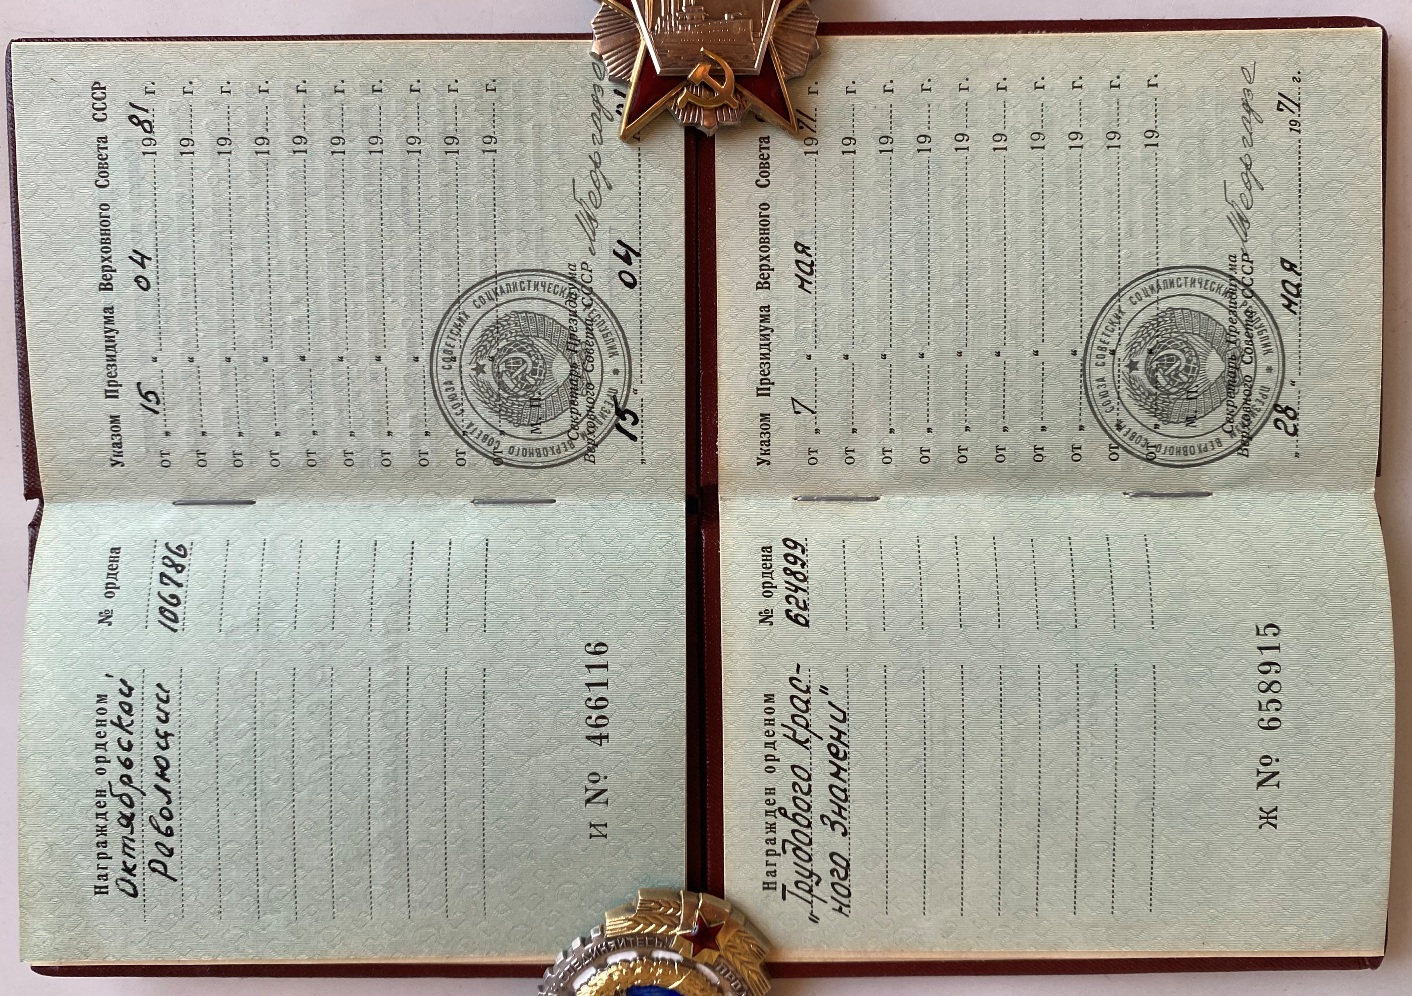 Награжден орденом № ордена
Октябрьской
Раволюции 106786
И № 466116
Указом Президиума Верховного Совета СССР
от „ 15 “ 04 1981 г.
от „ “ 19 г.
от „ “ 19 г.
от „ “ 19 г.
от „ “ 19 г.
от „ “ 19 г.
от „ “ 19 г.
от „ “ 19 г.
от „ “ 19 г.
от „ “ 19 г.
М. П.
Секретарь Президиума
Верховного Совета СССР
„ 15 “ 04
ПРЕЗИДИУМ ВЕРХОВНОГО СОВЕТА СОЮЗА СОВЕТСКИХ СОЦИАЛИСТИЧЕСКИХ РЕСПУБЛИК
Награжден орденом № ордена
„Трудового Крас- 624899
ного Знамени"
Ж № 658915
Указом Президиума Верховного Совета
от „ 7 “ мая 1971 г.
от „ “ 19 г.
от „ “ 19 г.
от „ “ 19 г.
от „ “ 19 г.
от „ “ 19 г.
от „ “ 19 г.
от „ “ 19 г.
от „ “ 19 г.
от „ “ 19 г.
М. П.
Секретарь Президиума
Верховного Совета СССР
„ 28 “ мая 1971 г.
ПРЕЗИДИУМ ВЕРХОВНОГО СОВЕТА СОЮЗА СОВЕТСКИХ СОЦИАЛИСТИЧЕСКИХ РЕСПУБЛИК